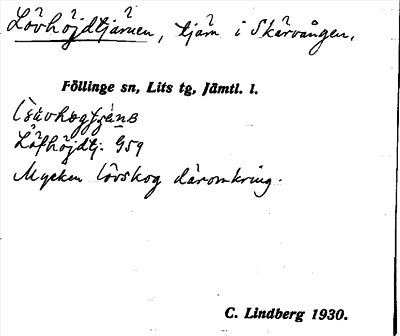 Lövhöjdtjärnen, tjärn i Skärvången.
Föllinge sn, Lits tg, Jämtl. l.
Löfhöjdtj. G59
Mycken lövskog däromkring.
C. Lindberg 1930.